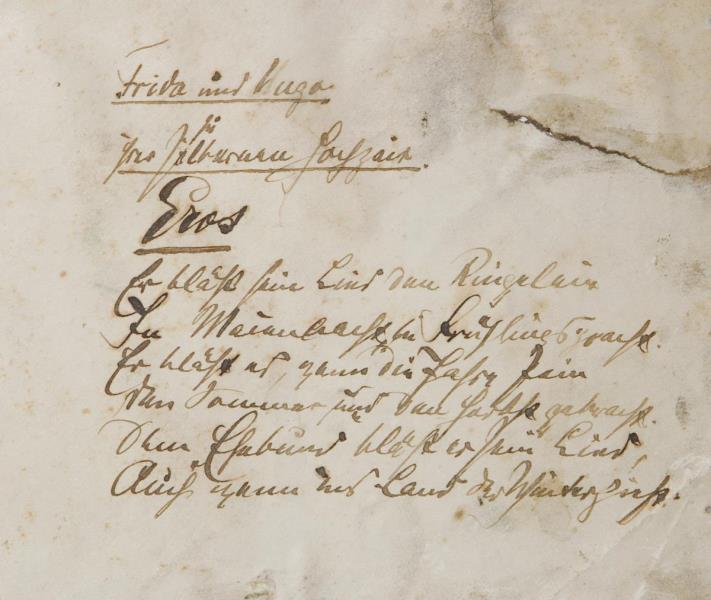 Frida und Hugo
zu
ihrer silbernen Hochzeit.
Eros
Er bläst sein Lied den Ringelein
In Maiennacht in Frühlingspracht.
Er bläst es, wenn die Jahre fein
den Sommer und den Herbst gebracht.
Dem Ehebund bläst er sein Lied,
Auch wenn ins Land der Winter zieht.